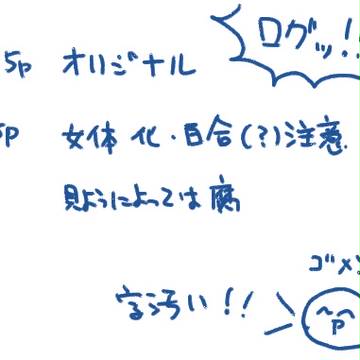 ログッ!!
5p オリジナル
5p 女体化・百合(?)注意
見ようによっては腐
ゴメン
字汚い!!